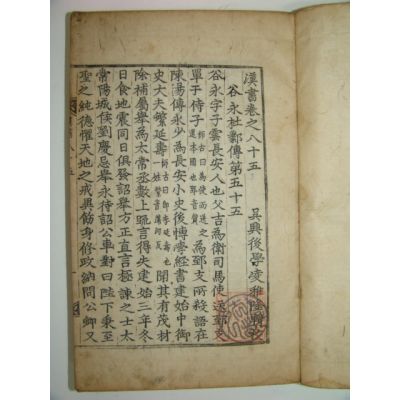 漢書卷之八十五
吳興後學凌稚隆輯校
谷永杜鄴傳第五十五
谷永字子雲長安人也父吉為衛司馬使送郅支
單于侍子師古曰為使而送之還本國也郅音質為郅支所殺語在
陳湯傳永少為長安小史後博學經書建始中御
史大夫繁延壽師古曰即李延壽也一姓繁音蒲何反聞其有茂材
除補屬舉為太常丞數上疏言得失建始三年冬
日食地震同日俱發詔舉方正直言極諫之士太
常陽城侯劉慶忌舉永待詔公車對曰陛下秉至
聖之純德懼天地之戒異飭身修政納問公卿又